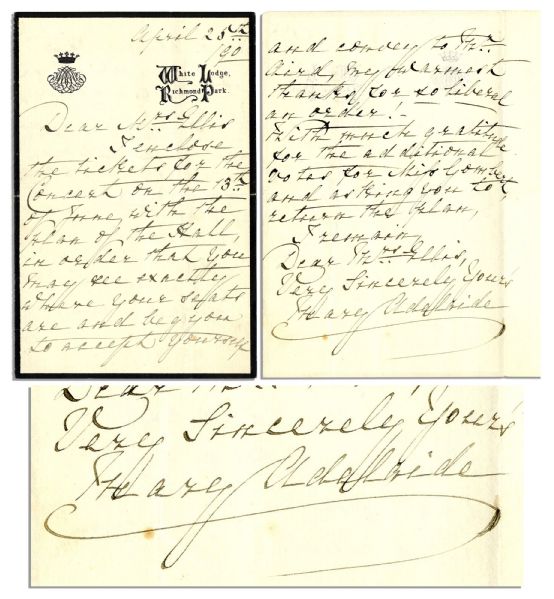 April 25th
/90
White Lodge,
Richmond Park.
Dear Mrs Ellis
I enclose
the tickets for the
Concert on the 13th
of June, with the
plan of the Hall,
in order that you
may see exactly
where your seats
are and beg you
to accept yourself
and convey to Mr
Aird, my warmest
thanks for so liberal
an order! -
With much gratitude
for the additional
votes for Miss
and asking you to
return the plan,
I remain,
Dear Mrs Ellis,
Very Sincerely Yours
Mary Adelaide
Dear
Very Sincerely Yours
Mary Adelaide